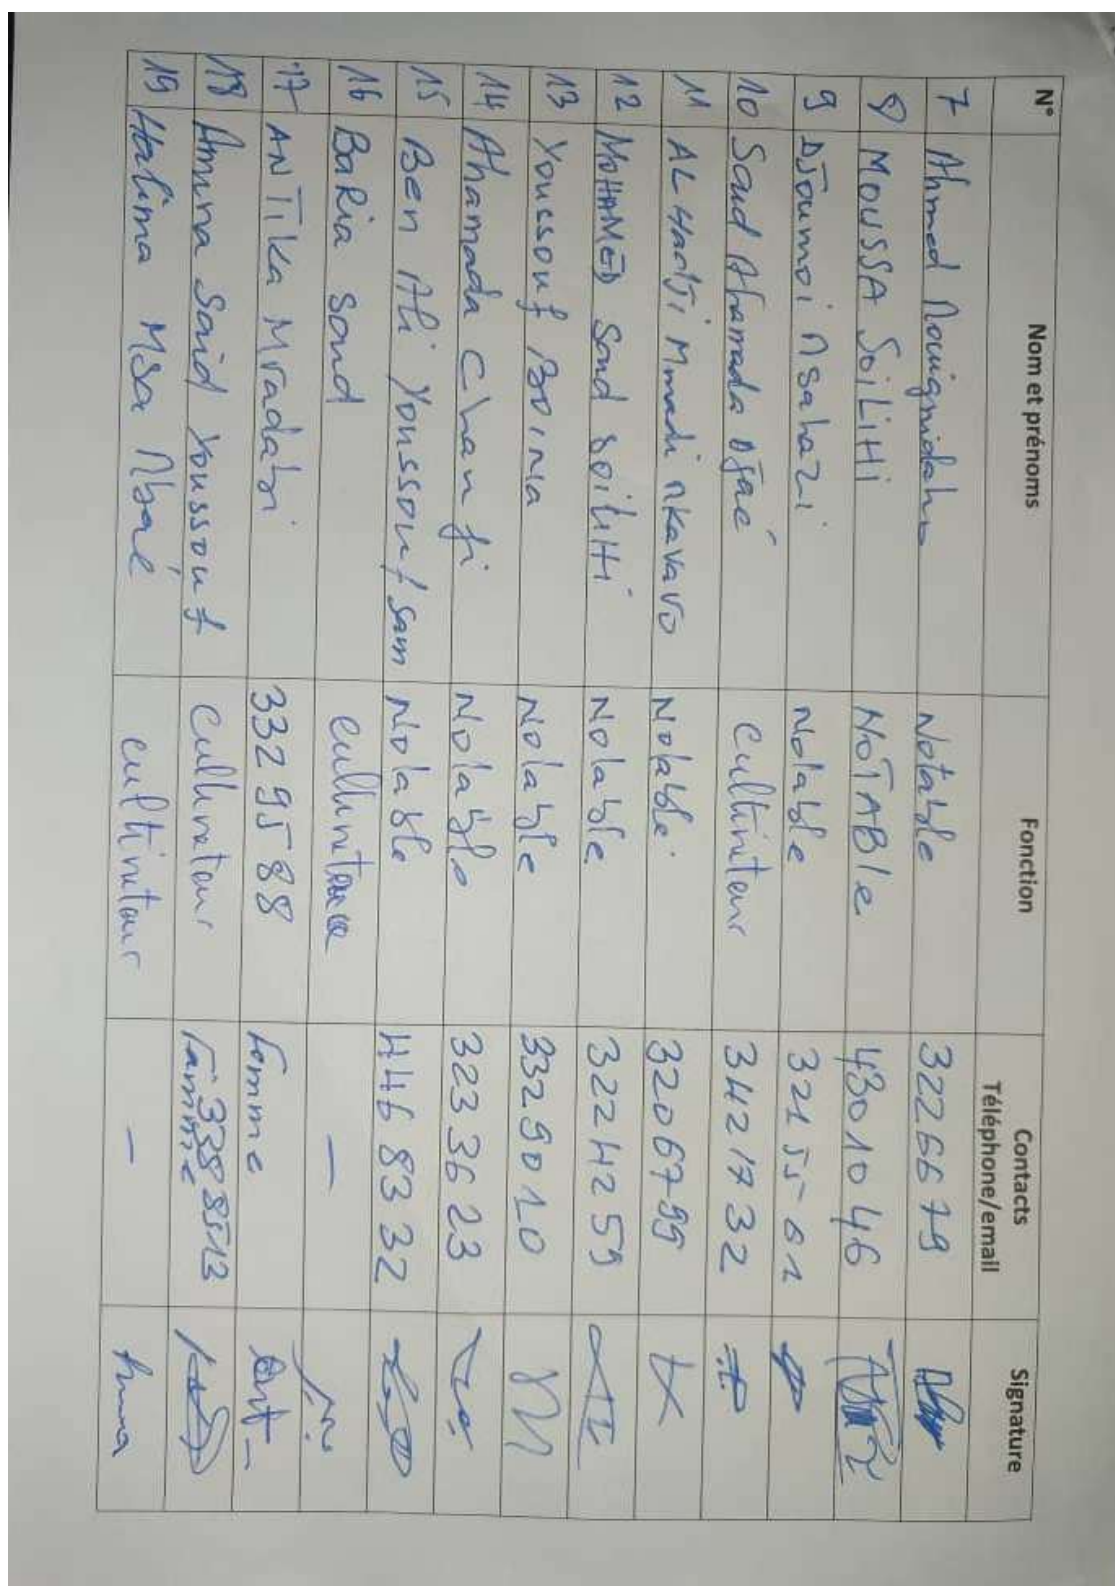 N° Nom et prénoms Fonction Contacts Téléphone/email Signature
7 Ahmed Notable 322 66 79
8 MOUSSA SOILIHI NOTABLE 430 10 46
9 Djoumoi nsahazi Notable 321 55 01
10 Saud Ahamada Djaé Cultivateur 342 17 32
11 AL Haadji Mmadi nkavavo Notable 320 67 99
12 MOHAMED Saud SOILIHI Notable 322 42 59
13 Youssouf BOINA Notable 332 90 10
14 Ahamada Chanfi Notable 323 36 23
15 Ben Ali Youssouf / Sam Notable 446 83 32
16 BaRia Saud —
17 ANTIKa Mradabi 332 95 88 Femme
18 Amina Said Youssouf Cultivateur Femme 338 85 13
19 Halima Msa cultivateur —